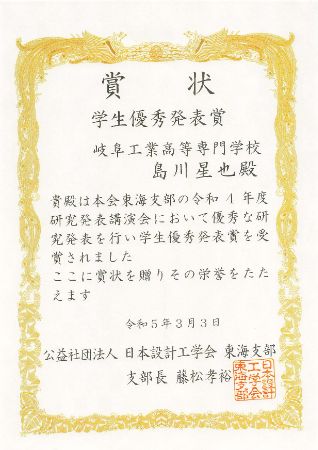 賞状
学生優秀発表賞
岐阜工業高等専門学校
島川星也殿
貴殿は本会東海支部の令和４年度
研究発表講演会において優秀な研
究発表を行い学生優秀発表賞を受
賞されました
ここに賞状を贈りその栄誉をたた
えます
令和５年３月３日
公益社団法人 日本設計工学会 東海支部
支部長 藤松孝裕
日本設計
工学会
東海支部